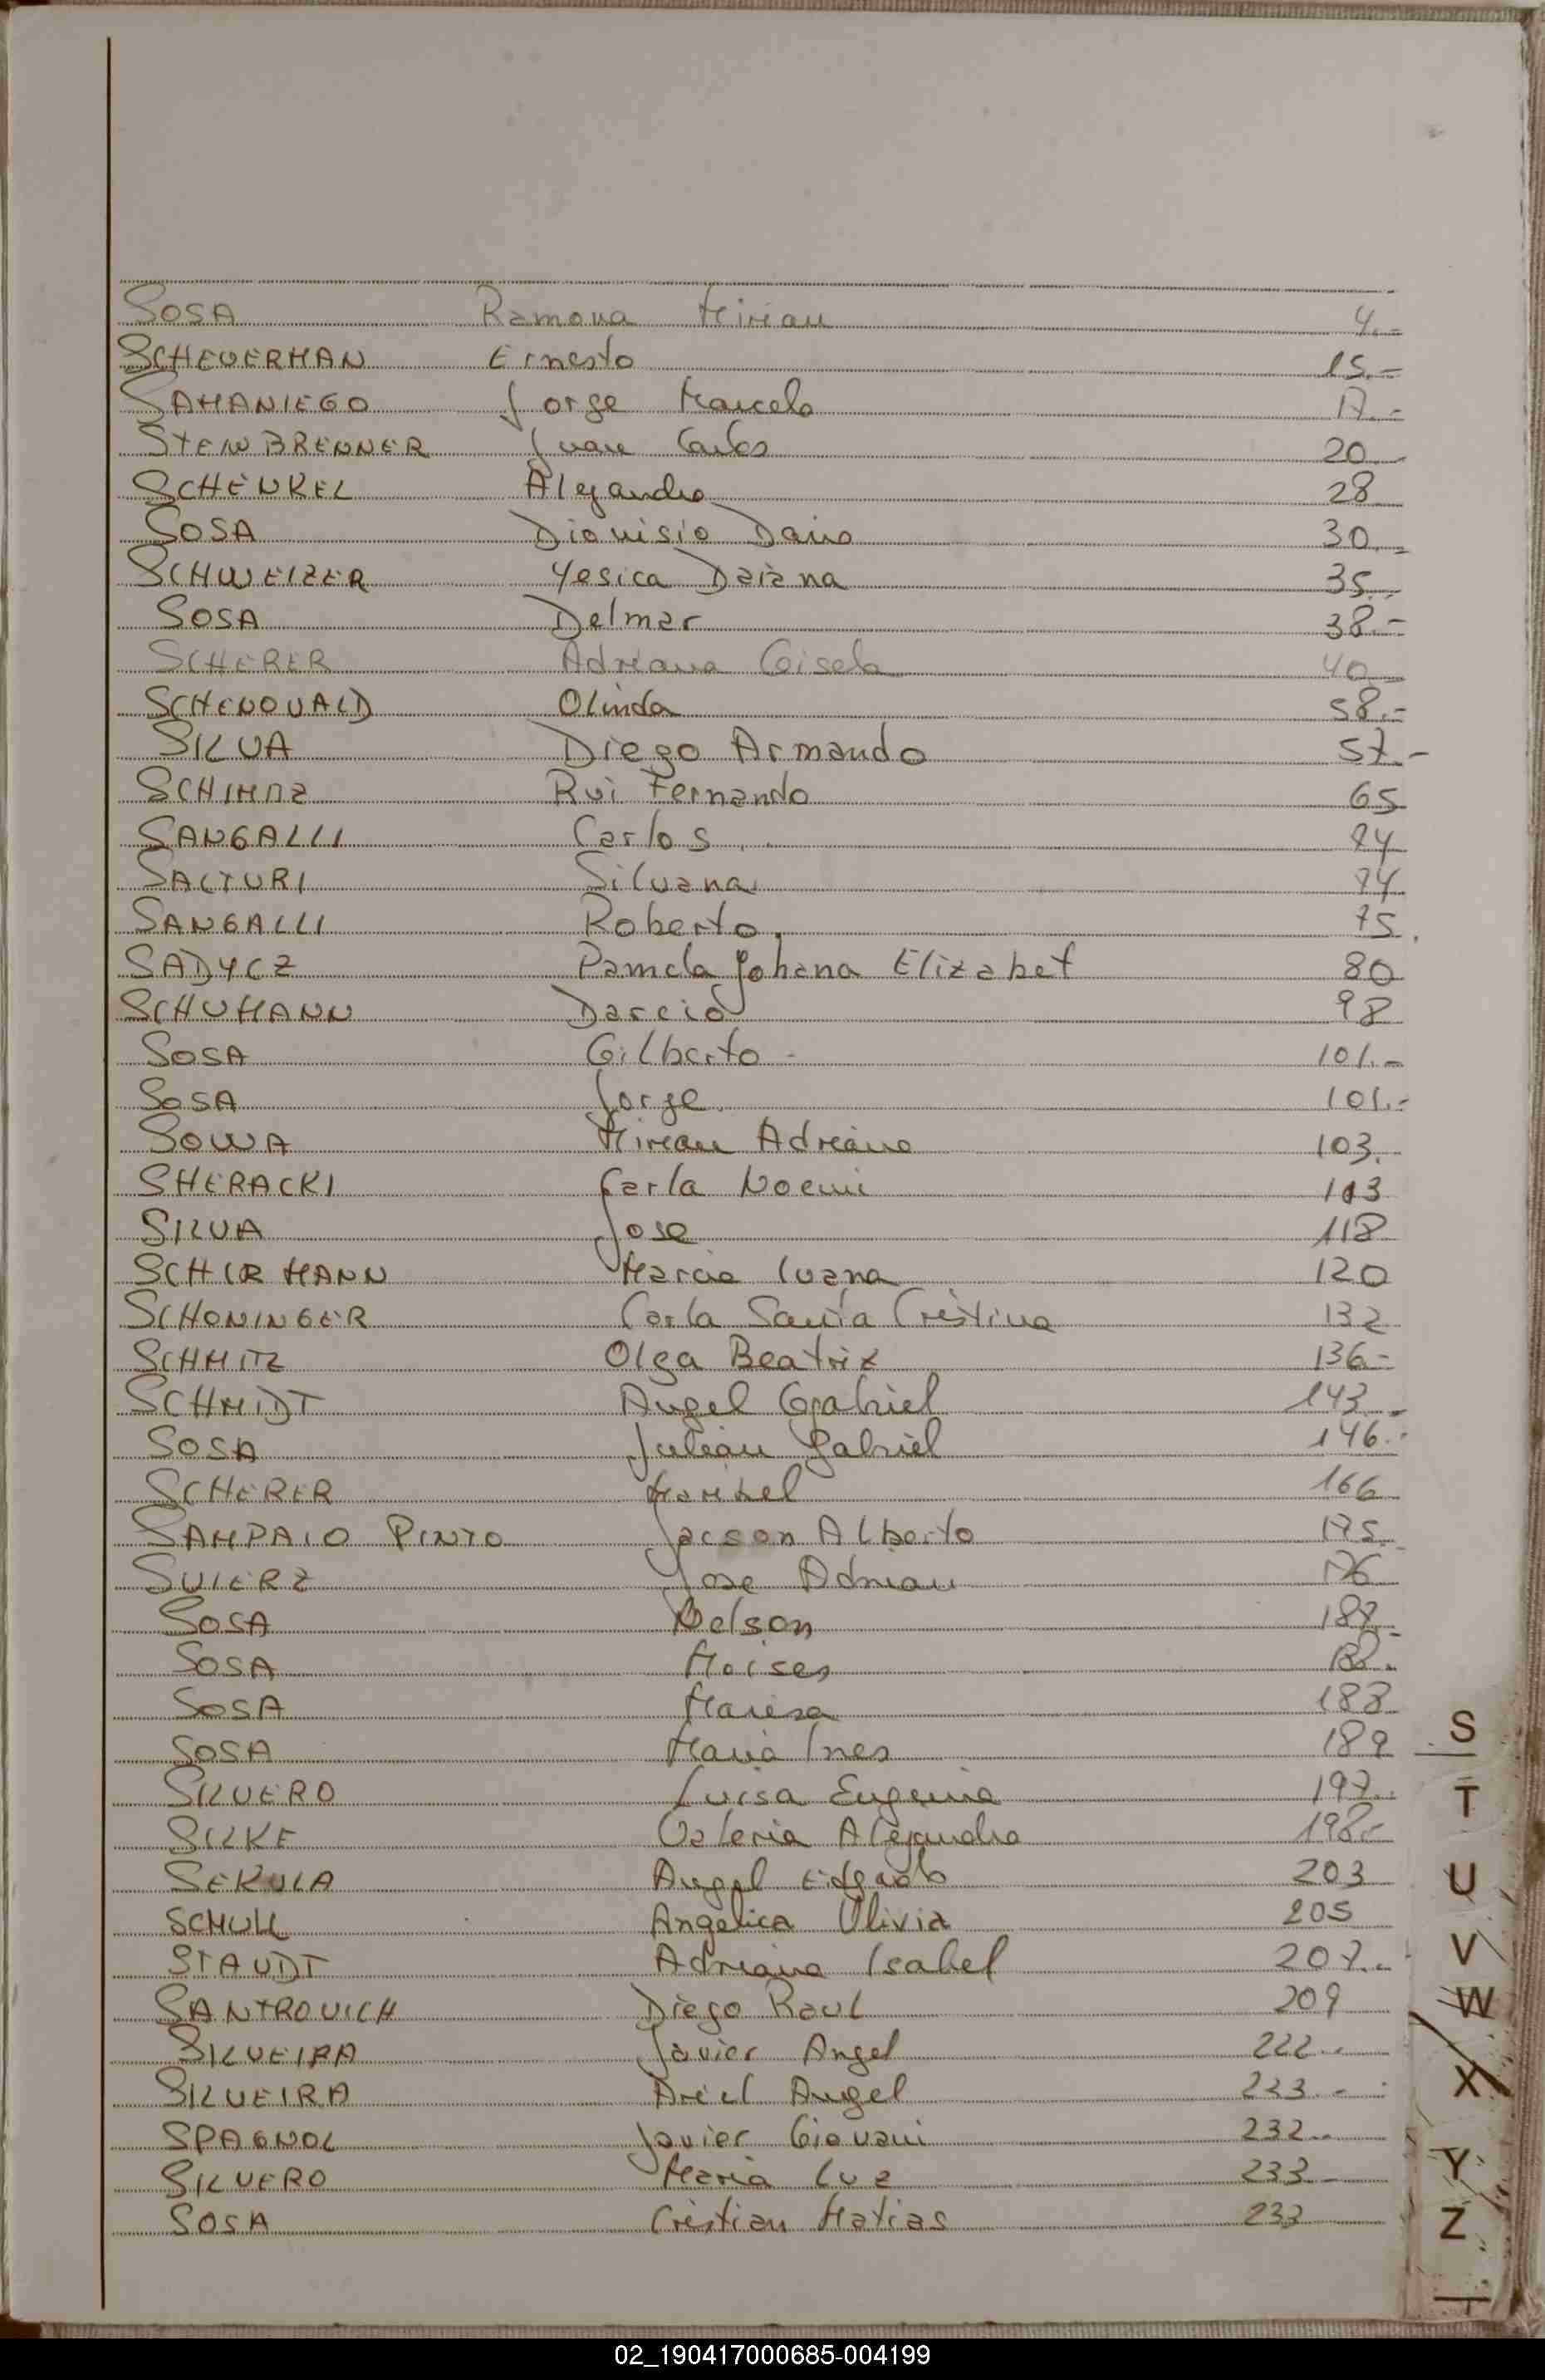 SOSA Ramona Mirian 4.-
SCHEUERMAN Ernesto 15.-
SAMANIEGO Jorge Marcelo 17.-
STEINBRENNER Juan Carlos 20
SCHENKEL Alejandro 28
SOSA Dionisio Dario 30.-
SCHWEIZER Yesica Daiana 35.-
SOSA Delmar 38.-
SCHERER Adriana Gisela 40
SCHENOVALD Olinda 58.-
SILVA Diego Armando 57.-
SCHIMTZ Rui Fernando 65
SANGALLI Carlos 74
SALTURI Silvana 74
SANGALLI Roberto. 75
SADYCZ Pamela Johana Elizabet 80
SCHUMANN Darcio 98
SOSA Gilberto - 101.-
SOSA Jorge 101.-
SOWA Mirian Adriana 103.
SHERACKI Carla Noemi 113
SILVA Jose 118
SCHIRMANN Maria Ivana 120
SCHONINGER Carla Santa Cristina 132
SCHMITZ Olga Beatriz 136-
SCHMIDT Angel Gabriel 143.-
SOSA Julian Gabriel 146.-
SCHERER Marisel 166
SAMPAIO PINTO Jacson Alberto 175.
SVIERZ Jose Adrian 176
SOSA Nelson 187.-
SOSA Moises
SOSA Maresa 188
SOSA Maria Ines 189
SILVERO Luisa Eugenia 197.
SILKE Valeria Alejandra 198.-
SEKULA Angel Edgardo 203
SCHULL Angelica Olivia 205
STAUDT Adriana Isabel 207.-
SANTROVICH Diego Raul 209
SILVEIRA Javier Angel 222.-
SILVEIRA Ariel Angel 223.-
SPAGNOL Javier Giovani 232.-
SILVERO Maria Luz 233-
SOSA Cristian Matias 233
S
T
U
V
W
X
Y
Z
02_190417000685-004199